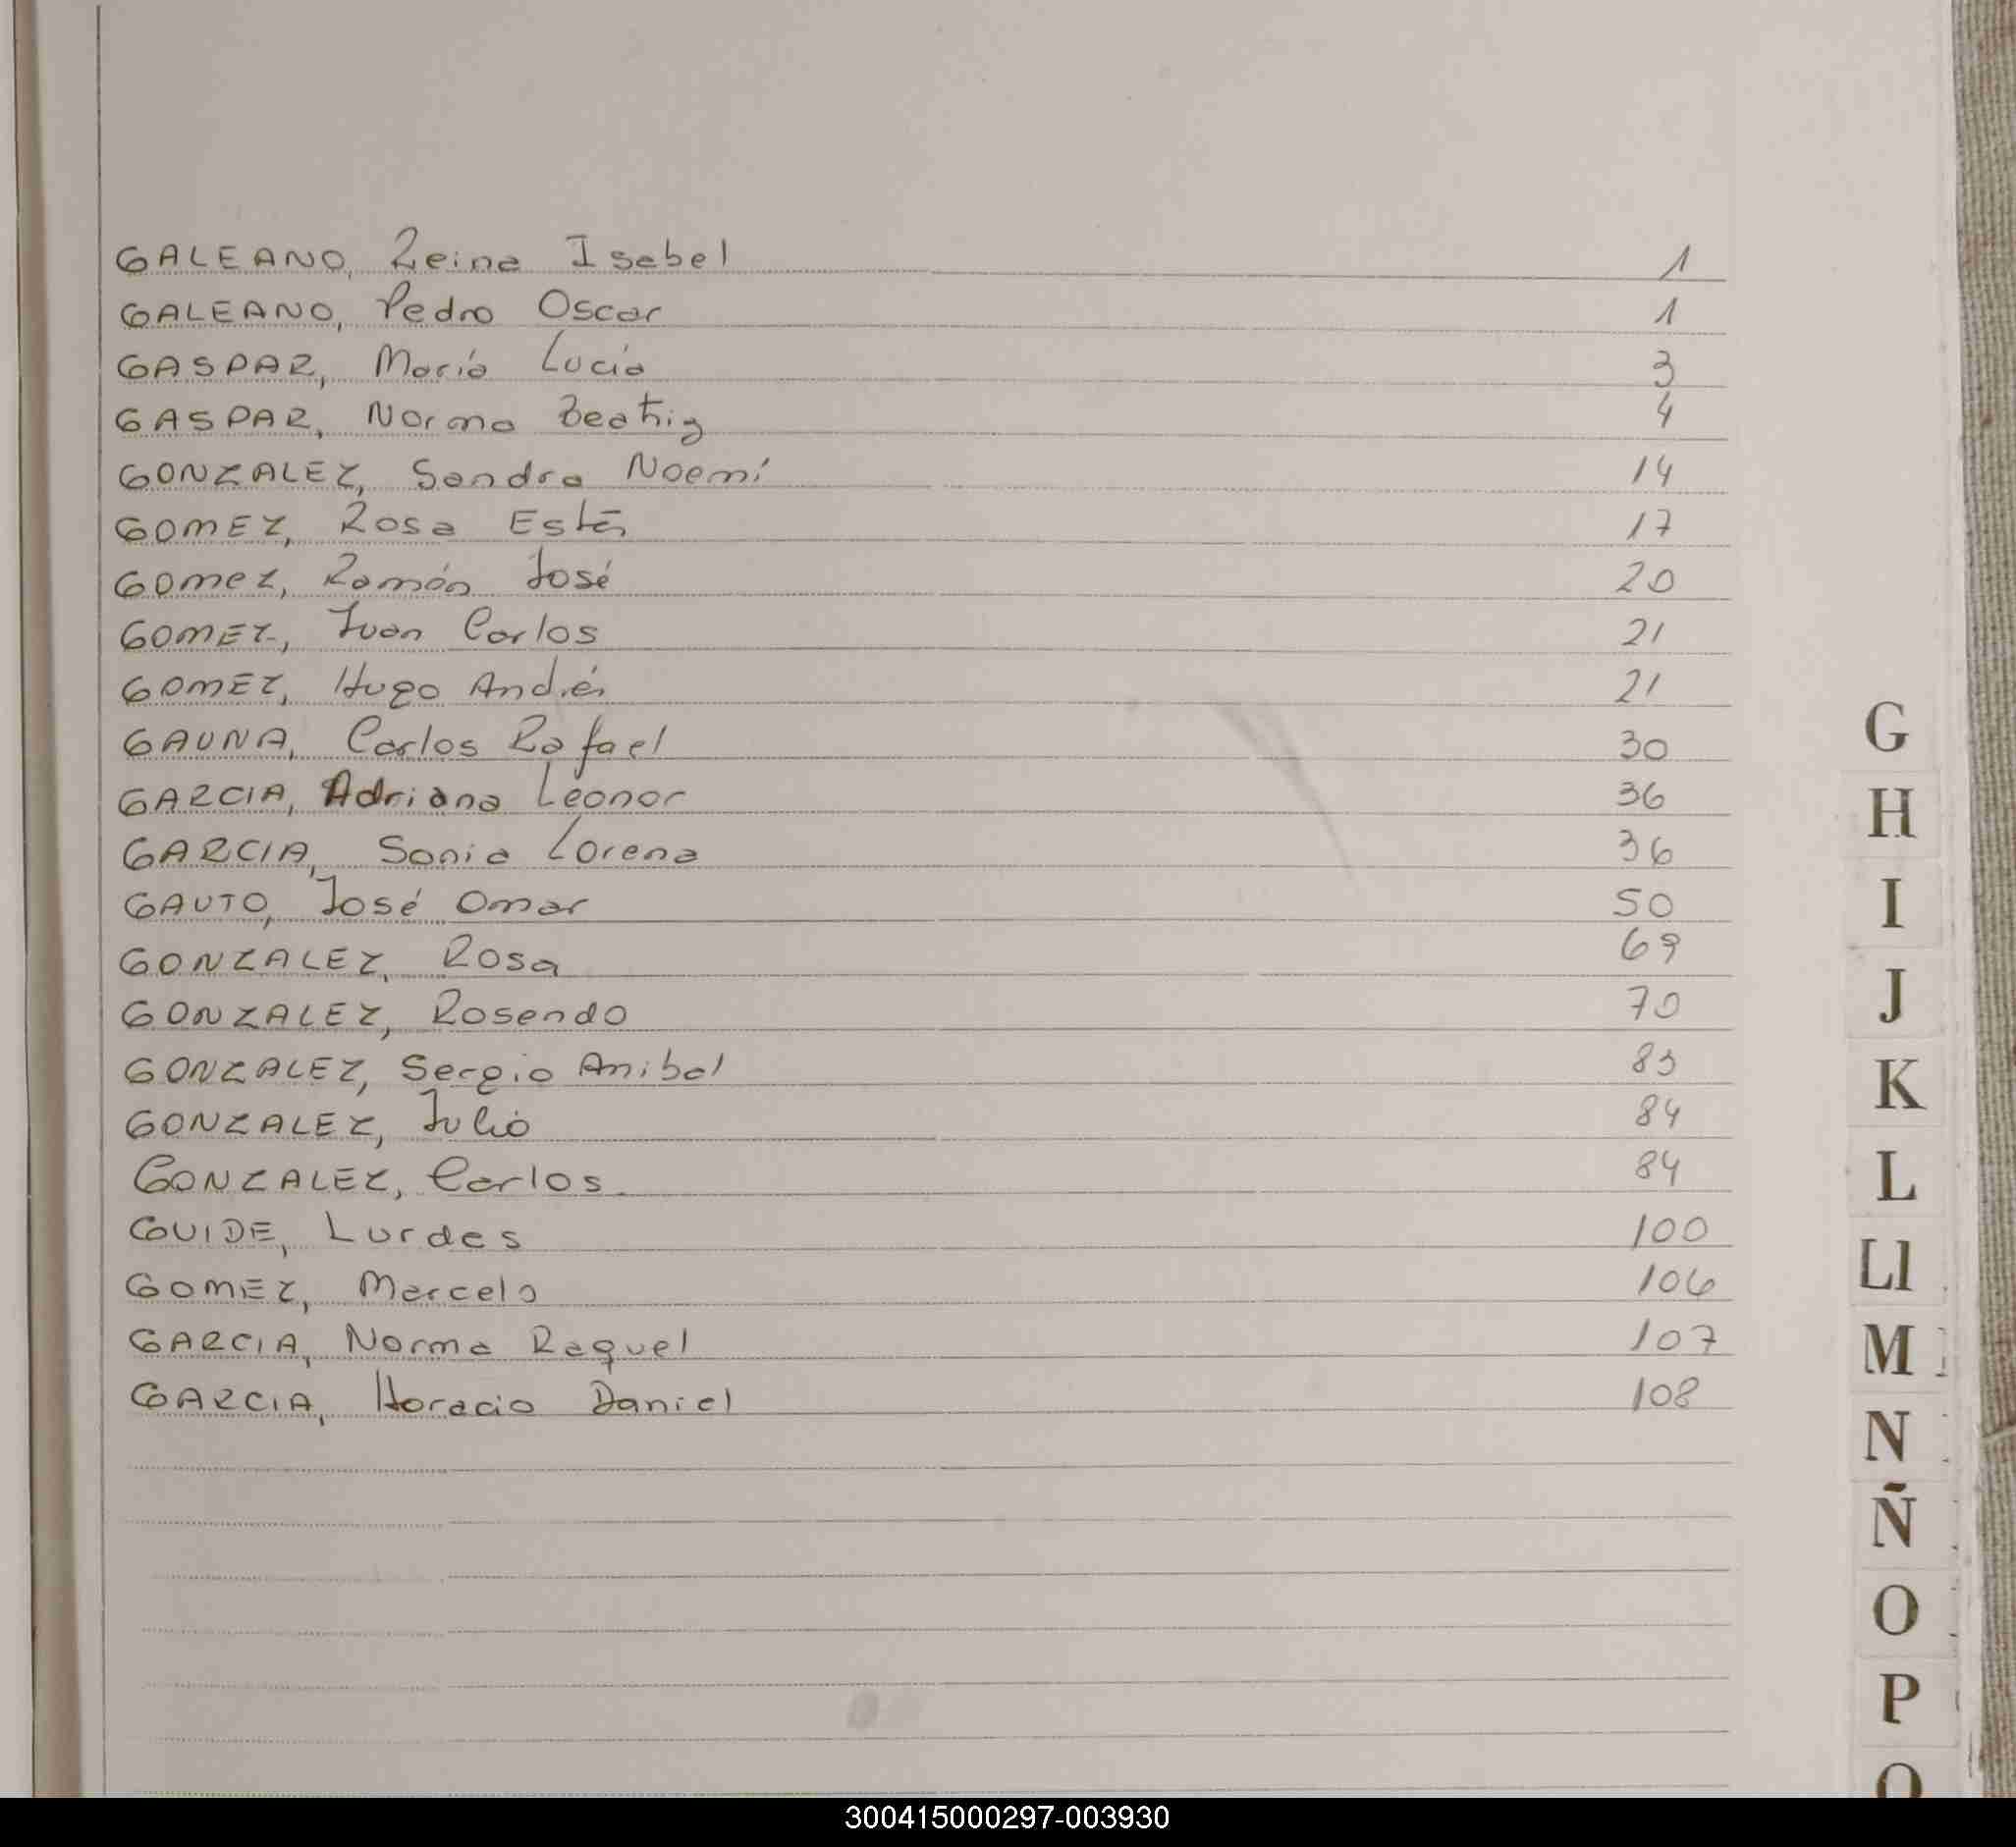 GALEANO, Reina Isabel 1
GALEANO, Pedro Oscar 1
GASPAR, María Lucía 3
GASPAR, Norma Beatriz 4
GONZALEZ, Sandra Noemí 14
GOMEZ, Rosa Estér 17
GOMEZ, Ramón José 20
GOMEZ, Juan Carlos 21
GOMEZ, Hugo Andrés 21
GAUNA, Carlos Rafael 30
GARCIA, Adriana Leonor 36
GARCIA, Sonia Lorena 36
GAUTO, José Omar 50
GONZALEZ, Rosa 69
GONZALEZ, Rosendo 70
GONZALEZ, Sergio Anibal 83
GONZALEZ, Julio 84
GONZALEZ, Carlos 84
GUIDE, Lurdes 100
GOMEZ, Marcelo 106
GARCIA, Norma Raquel 107
GARCIA, Horacio Daniel 108
G
H
I
J
K
L
Ll
M
N
Ñ
O
P
Q
300415000297-003930